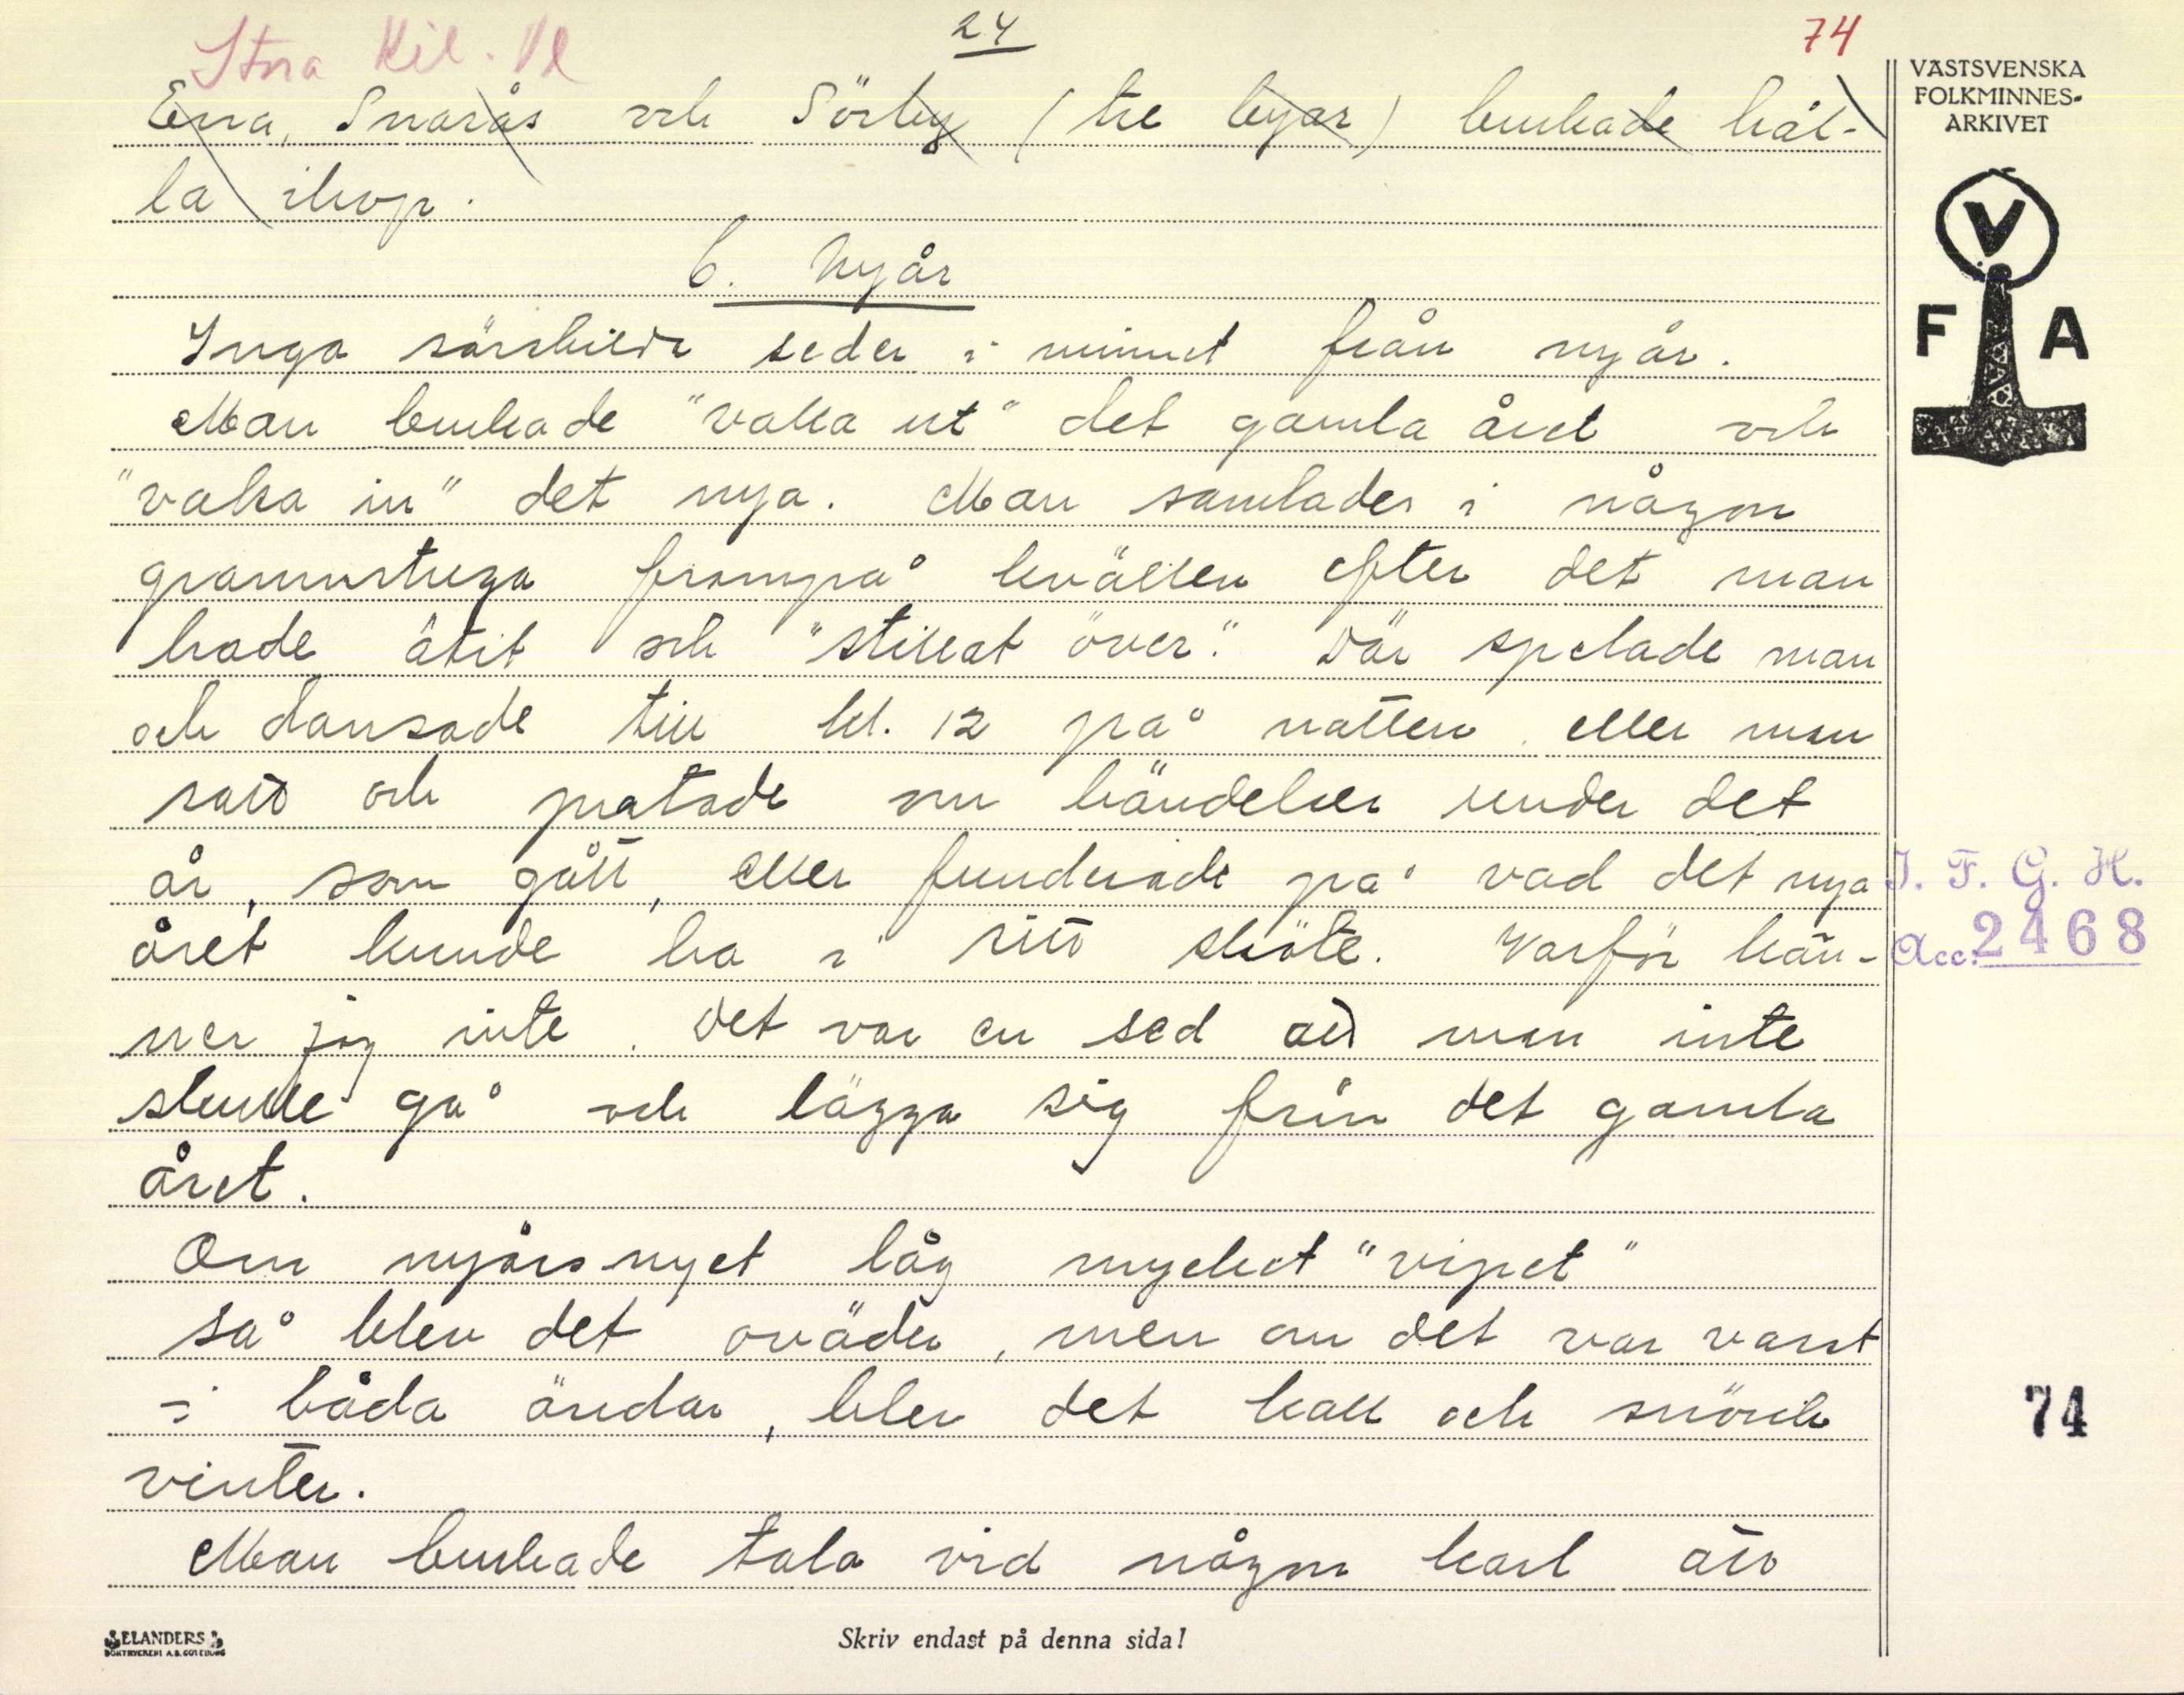 Stora Kil. Vl
24
74
Ena, Snarås och Sörby (tre byar) brukade hål-
la ihop.
6. Nyår
Inga särskilda seder i minnet från nyår.
Man brukade "vaka ut" det gamla året och
"vaka in" det nya. Man samlades i någon
grannstuga frampå kvällen efter det man
hade ätit och "stillat över". Där spelade man
och dansade till kl. 12 på natten eller man
satt och pratade om händelser under det
år, som gått, eller funderade på vad det nya
året kunde ha i sitt sköte. Varför kän-
ner jag inte. Det var en sed att man inte
skulle gå och lägga sig från det gamla
året.
Om nyårsnyet låg mycket "vipet"
så blev det oväder, men om det var vasst
i båda ändar, blev det kall och snörik
vinter.
Man brukade tala vid någon karl att
VÄSTSVENSKA
FOLKMINNES-
ARKIVET
V
F A
I. F. G. H.
Acc. 2468
74
ELANDERS
BOKTRYCKERI A.B. GÖTEBORG
Skriv endast på denna sida!